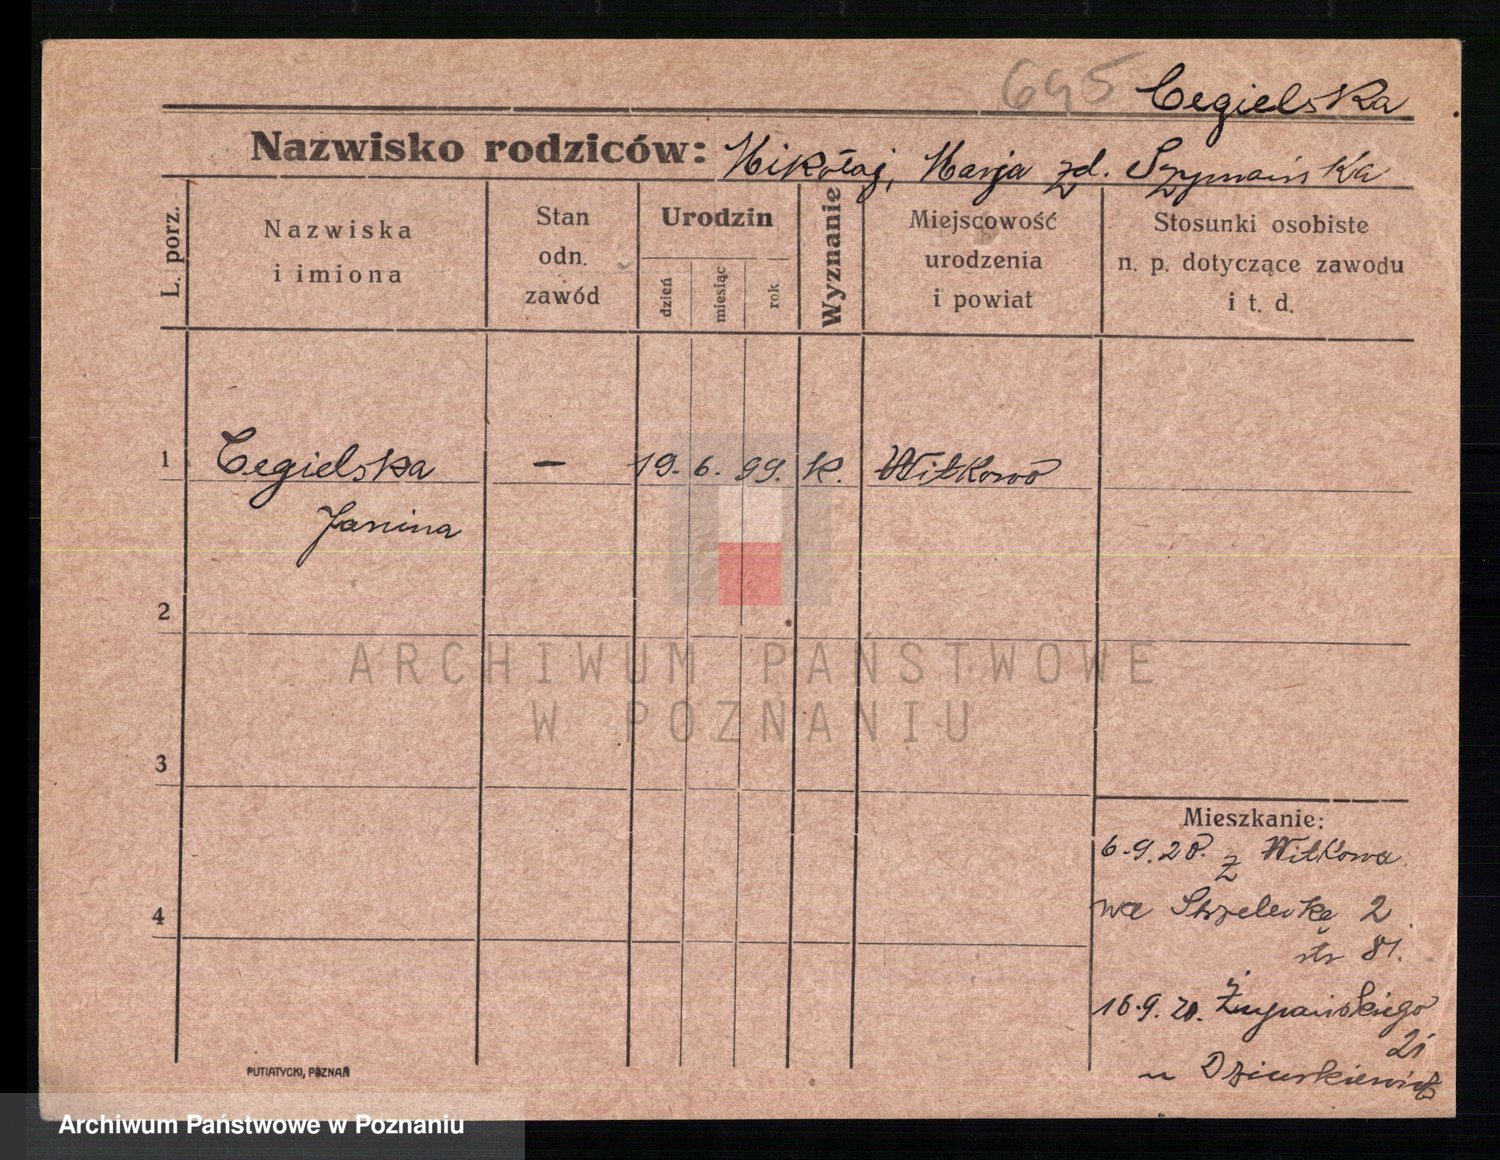 695 Cegielska
Nazwisko rodziców: Mikołaj, Marja zd. Szymańska
L. porz.
Nazwiska
i imiona
Stan
odn.
zawód
Urodzin
dzień
miesiąc
rok
Wyznanie
Miejscowość
urodzenia
i powiat
Stosunki osobiste
n. p. dotyczące zawodu
i t. d.
1 Cegielska — 19. 6. 99. k. Witkowo
Janina
2
ARCHIWUM PAŃSTWOWE
W POZNANIU
3
Mieszkanie:
6.9.20. z Witkowa
na Strzelecką 2
4
str 81.
16.9.20. Żupańskiego
21
u
PUTIATYCKI, POZNAŃ
Archiwum Państwowe w Poznaniu